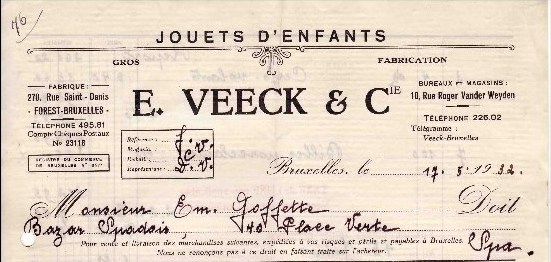 40
JOUETS D'ENFANTS
GROS FABRICATION
FABRIQUE:
270, Rue Saint-Denis
FOREST-BRUXELLES
TÉLÉPHONE 495.81
Compte Chèques Postaux
No 23118
REGISTRE DU COMMERCE
DE BRUXELLES No
E. VEECK & CIE
BUREAUX ET MAGASINS:
10, Rue Roger Vander Weyden
TÉLÉPHONE 226.02
Télégramme:
Veeck-Bruxelles
Référence:
Magasin:
Rabat:
Représentant: V.
Bruxelles, le 17. 8. 1932.
Monsieur Em. Goffette Doit
Bazar Spadois, 40 Place Verte
Spa.
Pour vente et livraison des marchandises suivantes, expédiées à vos risques et périls et payables à Bruxelles.
Nous ne renonçons pas à ce droit en faisant traite sur l'acheteur.